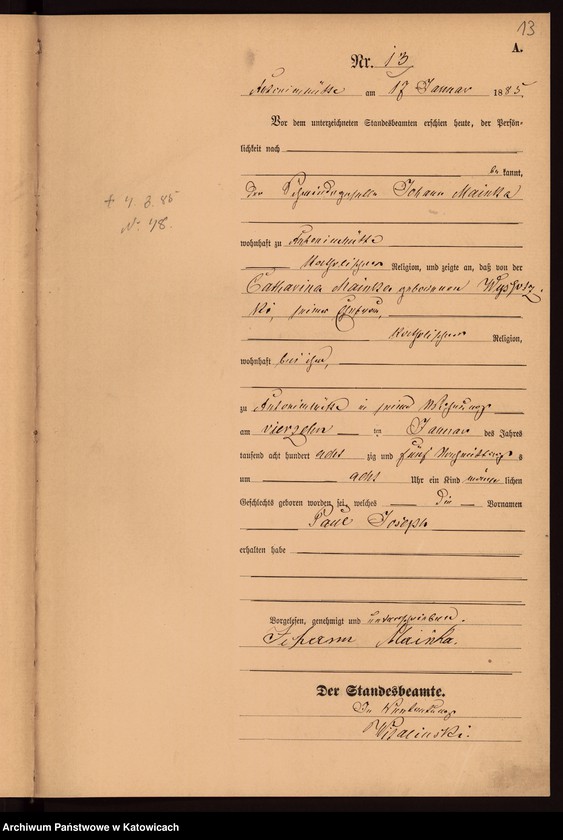 13
A.
Nr. 13
Antonienhütte am 17 Januar 1885.
Vor dem unterzeichneten Standesbeamten erschien heute, der Persön-
lichkeit nach
be kannt,
der Johann Mainka
wohnhaft zu Antonienhütte
katholischer Religion, und zeigte an, daß von der
Catharina Mainka geborenen
seiner Ehefrau,
katholischer Religion,
wohnhaft bei ihm,
zu Antonienhütte in seiner Wohnung
am vierzehn ten Januar des Jahres
tausend acht hundert acht zig und fünf Nachmittags
um acht Uhr ein Kind männ lichen
Geschlechts geboren worden sei, welches die Vornamen
Paul Joseph
erhalten habe
Vorgelesen, genehmigt und unterschrieben.
Johann Mainka.
Der Standesbeamte.
In Vertretung
+ 4. 3. 85
N. 48.
Archiwum Państwowe w Katowicach